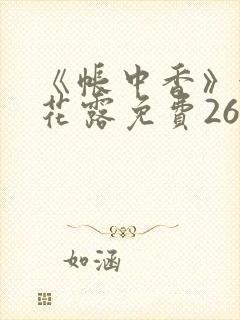 《帐中香》
花露免費26
如涵